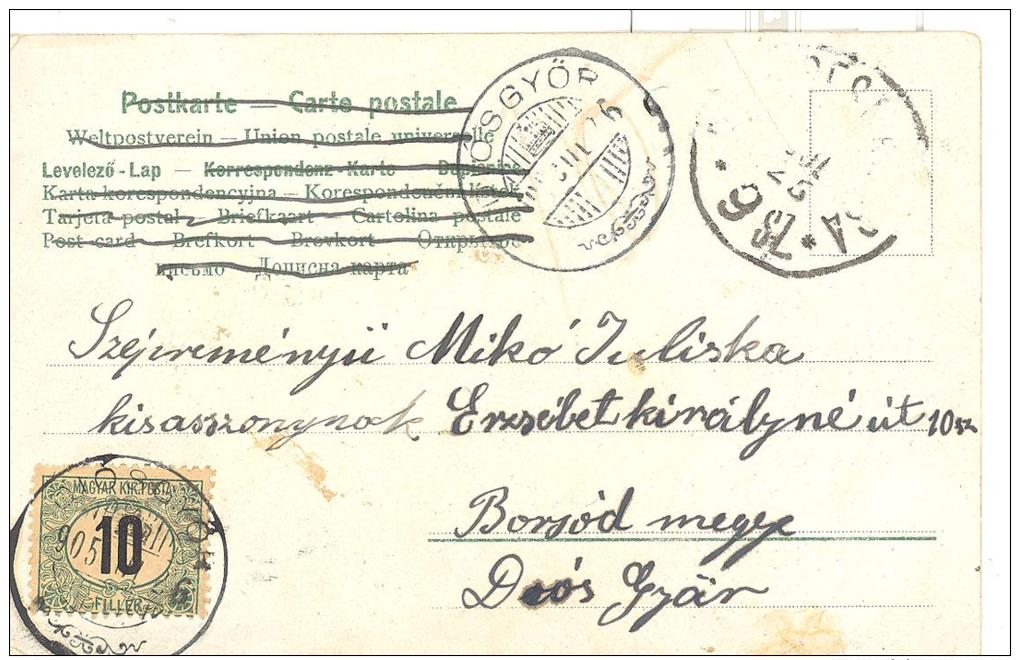 Postkarte — Carte postale
Weltpostverein — Union postale universelle
Levelező-Lap — Korrespondenz-Karte Dopisnice
Karta korespondencyjna — Korespondenční lístek
Tarjeta postal — Briefkaart — Cartolina postale
Post card — Brefkort — Brevkort — Открытое
письмо — Дописна карта
DIÓSGYŐR
Szépreményü Mikó Juliska
kisasszonynak Erzsébet királyné út 10 sz
Borsód megye
Diós Gyár
MAGYAR KIR. POSTA
10
FILLÉR